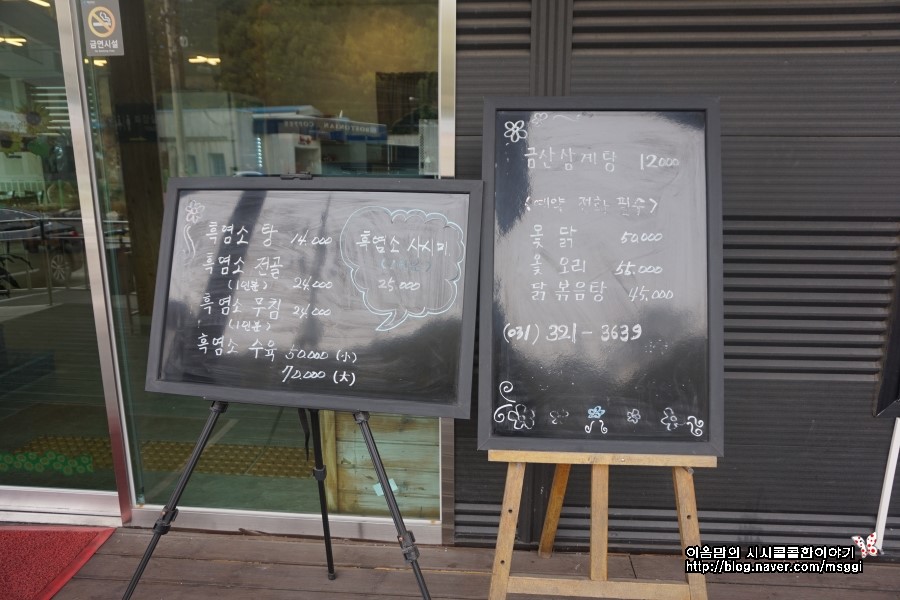 금연시설
흑염소 탕 14.000
흑염소 전골
(1인분) 24.000
흑염소 무침 24.000
(1인분)
흑염소 수육 50.000 (小)
70.000 (大)
흑염소 사시미
25.000
금산삼계탕 12000
<예약 전화 필수>
옻 닭 50,000
옻 오리 55,000
닭볶음탕 45,000
(031) 321-3639
이음맘의 시시콜콜한이야기
http://blog.naver.com/msggi